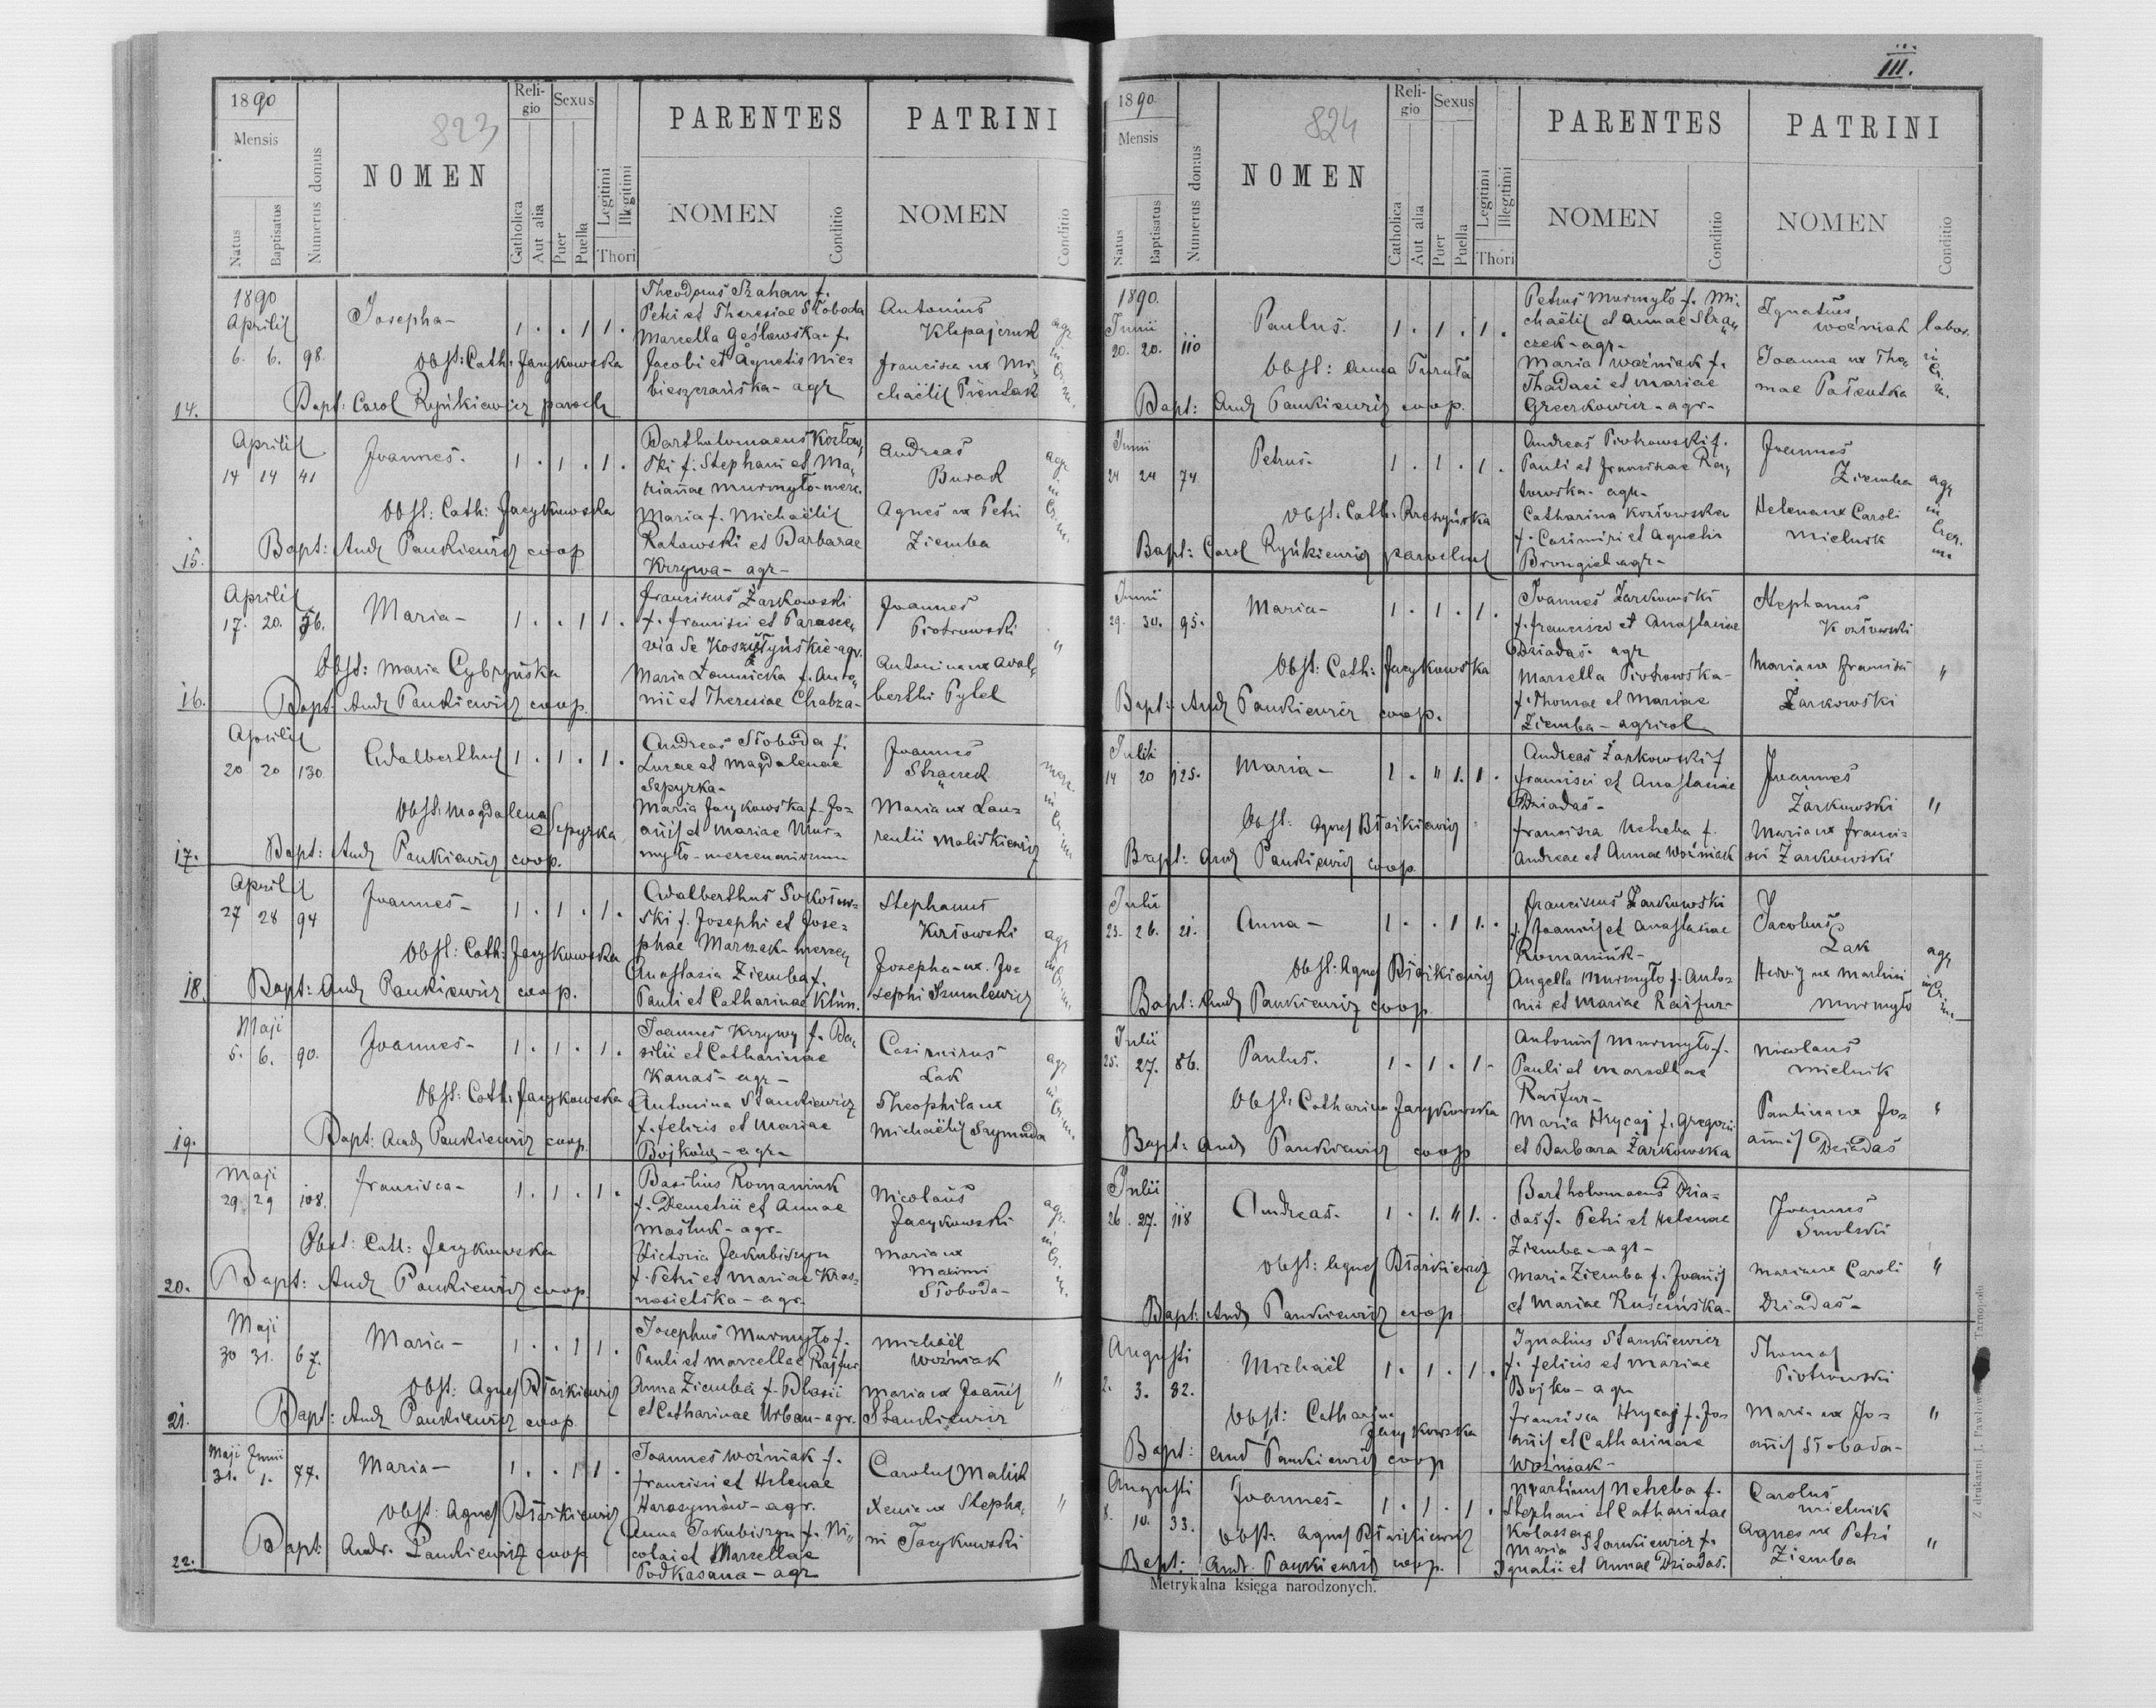 III.
1890
Mensis
Natus
Baptisatus
Numerus domus
823
NOMEN
Religio
Catholica
Aut alia
Sexus
Puer
Puella
Legitimi
Illegitimi
Thori
PARENTES
NOMEN
Conditio
PATRINI
NOMEN
Conditio
14.
1890
Aprilis
6. 6. 98.
Josepha-
1 . . 1 1 .
Obst: Cath: Jacykowska
Bapt: Carol Ryńkiewicz paroch
Theodorus Szahan f.
Petri et Theresiae Słoboda
Marcella Gęsłowska f.
Jacobi et Agnetis Nie-
bieszczańska - agr
Antonius
Klepajczuk
Francisca ux Mi-
chaëlis Pieńtak
agr
15.
Aprilis
14 14 41
Joannes.
1 . 1 . 1 .
Obst: Cath: Jacykowska
Bapt: And Pankiewicz coop
Bartholomaeus Kozłow-
ski f. Stephani et Ma-
riannae Murmyło - merc.
Maria f. Michaëlis
Ratowski et Barbarae
Krzywa - agr -
Andreas
Burak
Agnes ux Petri
Ziemba
agr.
16.
Aprilis
17. 20. 56.
Maria-
1 . . 1 1 .
Obst: Maria Cybryńska
Bapt: And Pankiewicz coop.
Franciscus Żarkowski
f. Francisci et Parasce-
via de Koszałyńskie - agr.
Maria Łomnicka f. Anto-
nii et Theresiae Chabza-
Joannes
Piotrowski
Antonina ux Adal-
berthi Pytel
"
17.
Aprilis
20 20 130
Adalberthus
1 . 1 . 1 .
Obst: Magdalena Sepyrka
Bapt: And Pankiewicz coop.
Andreas Słoboda f.
Lucae et Magdalenae
Sepyrka-
Maria Jacykowska f. Jo-
annis et Mariae Mur-
myło - mercenariorum
Joannes
Maria ux Lau-
rentii Maliśkiewicz
merc.
18.
Aprilis
27 28 94
Joannes-
1 . 1 . 1 .
Obst: Cath: Jacykowska
Bapt: And Pankiewicz coop.
Adalberthus Sokołow-
ski f. Josephi et Jose-
phae Marszek - mercen
Anastasia Ziemba f.
Pauli et Catharinae Klim.
Stephanus
Kozłowski
Josepha ux. Jo-
sephi Szumlewicz
agr
19.
Maji
5. 6. 90.
Joannes-
1 . 1 . 1 .
Obst: Cath: Jacykowska
Bapt: And Pankiewicz coop
Joannes Krzywy f. Ba-
silii et Catharinae
Kanas - agr -
Antonina Stankiewicz
f. Felicis et Mariae
Bojków - agr -
Casimirus
Łak
Theophila ux
Michaëlis Szymuda
agr
20.
Maji
29. 29 108.
Francisca-
1 . 1 . 1 .
Obst: Cath: Jacykowska
Bapt: And Pankiewicz coop
Basilius Romaniuk
f. Demetrii et Annae
Mastuk - agr -
Victoria Jakubiszyn
f. Petri et Mariae Kras-
nosielska - agr
Nicolaus
Jacykowski
Maria ux
Maximi
Słoboda-
agr.
21.
Maji
30 31. 67.
Maria-
1 . . 1 1 .
Obst: Agnes Błaśkiewicz
Bapt: And Pankiewicz coop
Josephus Murmyło f.
Pauli et Marcellae Rajfur
Anna Ziemba f. Blasii
et Catharinae Urban - agr.
Michaël
Woźniak
Maria ux Joannis
Stankiewicz
"
22.
Maji Junii
31. 1. 77.
Maria-
1 . . 1 1 .
Obst: Agnes Błaśkiewicz
Bapt: Andr. Pankiewicz coop
Joannes Woźniak f.
Francisci et Helenae
Harasymów - agr.
Anna Jakubiszyn f. Ni-
colai et Marcellae
Podkasana - agr
Carolus Malik
Xenia ux Stepha-
ni Jacykowski
"
1890
Mensis
Natus
Baptisatus
Numerus domus
824
NOMEN
Religio
Catholica
Aut alia
Sexus
Puer
Puella
Legitimi
Illegitimi
Thori
PARENTES
NOMEN
Conditio
PATRINI
NOMEN
Conditio
1890.
Junii
20. 20. 110
Paulus.
1 . 1 . 1 .
Obst: Anna Turuta
Bapt: And Pankiewicz coop.
Petrus Murmyło f. Mi-
chaëlis et Annae Stra-
czek - agr -
Maria Woźniak f.
Thadaei et Mariae
Greczkowicz - agr -
Ignatius
Woźniak
Joanna ux Tho-
mae Pałentka
labor.
Junii
24 24 74
Petrus.
1 . 1 . 1 .
Obst. Cath:
Bapt: Carol Ryńkiewicz parochus
Andreas Piotrowski f.
Pauli et Franciscae Ra-
towska - agr -
Catharina Kozłowska
f. Casimiri et Agnetis
Brongiel - agr -
Joannes
Ziemba
Helena ux Caroli
Mielnik
agr
Junii
29. 30. 95.
Maria-
1 . 1 . 1 .
Obst: Cath: Jacykowska
Bapt: And Pankiewicz coop.
Joannes Żarkowski
f. Francisci et Anastasiae
Dziadas - agr
Marcella Piotrowska -
f. Thomae et Mariae
Ziemba - agricol
Stephanus
Kozłowski
Maria ux Francisci
Żarkowski
"
Julii
14 20 125.
Maria-
1 . " 1. 1 .
Obst: Agnes Błaśkiewicz
Bapt: And Pankiewicz coop
Andreas Żarkowski f
Francisci et Anastasiae
Dziadas -
Francisca Neheba f.
Andreae et Annae Woźniak
Joannes
Żarkowski
Maria ux Franci-
sci Żarkowski
"
Julii
25. 26. 21.
Anna-
1 . . 1 1 .
Obst: Agnes Błaśkiewicz
Bapt: And Pankiewicz coop
Franciscus Żarkowski
f. Joannis et Anastasiae
Romaniuk -
Angella Murmyło f. Anto-
nii et Mariae Rajfur -
Jacobus
Łak
Hedvig ux Martini
Murmyło
agr
Julii
25. 27. 86.
Paulus.
1 . 1 . 1 -
Obst: Catharina Jacykowska
Bapt: And Pankiewicz coop
Antonius Murmyło f.
Pauli et Marcellae
Rajfur -
Maria Hrycaj f. Gregorii
et Barbara Żarkowska
Nicolaus
Mielnik
Paulina ux Jo-
annis Dziadas
"
Julii
26. 27. 118
Andreas.
1 . 1. " 1. .
Obst: Agnes Błaśkiewicz
Bapt: And Pankiewicz coop
Bartholomaeus Dzia-
das f. Petri et Helenae
Ziemba - agr -
Maria Ziemba f. Joannis
et Mariae Ruścińska -
Joannes
Smolski
Maria ux Caroli
Dziadas -
"
Augusti
2. 3. 82.
Michaël
1 . 1 . 1 .
Obst: Catharina Jacykowska
Bapt: And Pankiewicz coop
Ignatius Stankiewicz
f. Felicis et Mariae
Bojko - agr
Francisca Hrycaj f. Jo-
annis et Catharinae
Woźniak -
Thomas
Piotrowski
Maria ux Jo-
annis Słoboda -
"
Augusti
8. 10. 33.
Joannes-
1 . 1 . 1 .
Obst: Agnes Błaśkiewicz
Bapt: Andr. Pankiewicz coop.
Martinus Neheba f.
Stephani et Catharinae
Maria Stankiewicz f.
Ignatii et Annae Dziadas.
Carolus
Mielnik
Agnes ux Petri
Ziemba
"
Metrykalna księga narodzonych.
Z drukarni J. Pawłow Tarnopolu